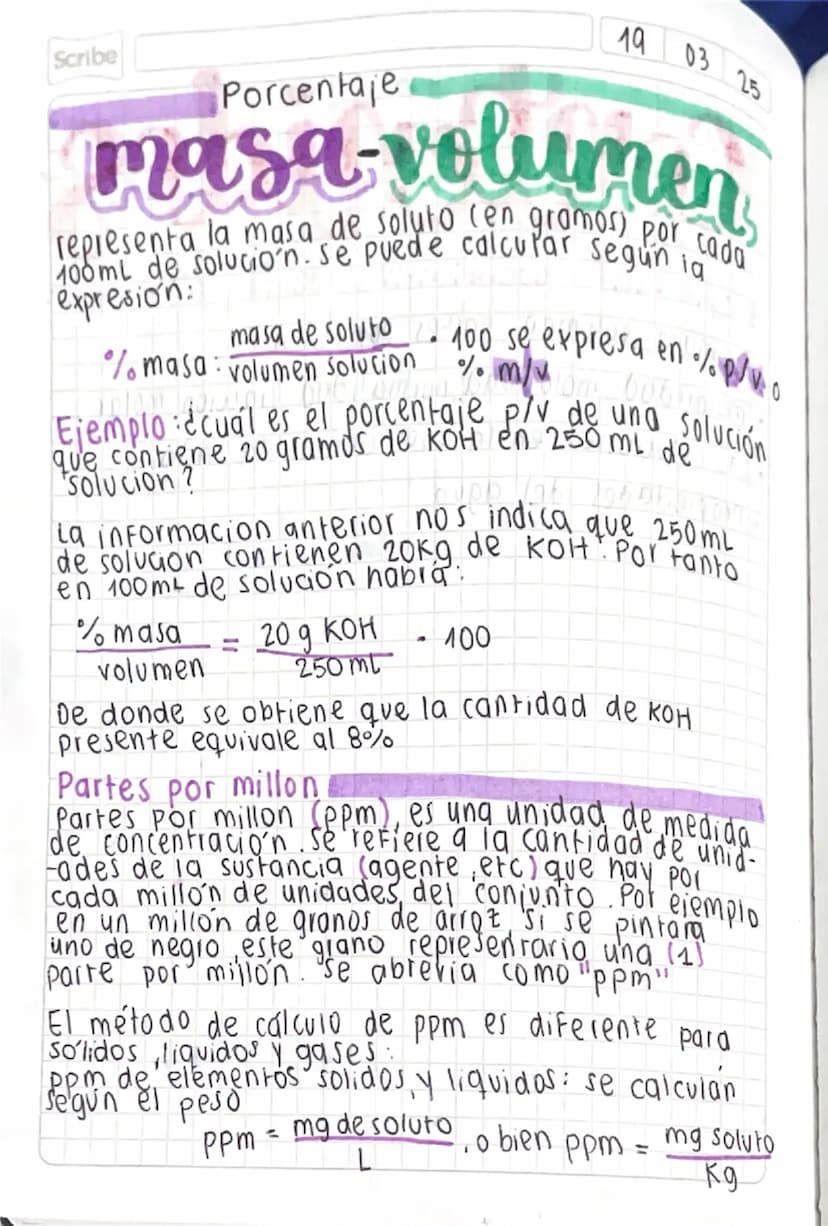 Scribe
19 03 25
Porcentaje
masa-volumen
representa la masa de soluto (en gramos) por cada
100mL de solución. se puede calcular según la
expresión:
% masa: masa de soluto / volumen solucion · 100 se expresa en % p/v o
% m/v
Ejemplo: ¿cuál es el porcentaje p/v de una solución
que contiene 20 gramos de KOH en 250 mL de
solucion?
La informacion anterior nos indica que 250mL
de solucion contienen 20Kg de KOH. Por tanto
en 100mL de solución habrá:
% masa / volumen = 20 g KOH / 250 mL · 100
De donde se obtiene que la cantidad de KOH
presente equivale al 8%
Partes por millon
Partes por millon (ppm), es una unidad de medida
de concentración. se refiere a la cantidad de unid-
-ades de la sustancia (agente, etc) que hay por
cada millón de unidades del conjunto. Por ejemplo
en un millón de granos de arroz, si se pintara
uno de negro, este grano representraria una (1)
parte por millón. se abrevia como "ppm"
El método de cálculo de ppm es diferente para
sólidos, liquidos y gases:
ppm de elementos solidos y liquidos: se calculan
según el peso
ppm = mg de soluto / L , o bien ppm = mg soluto / Kg